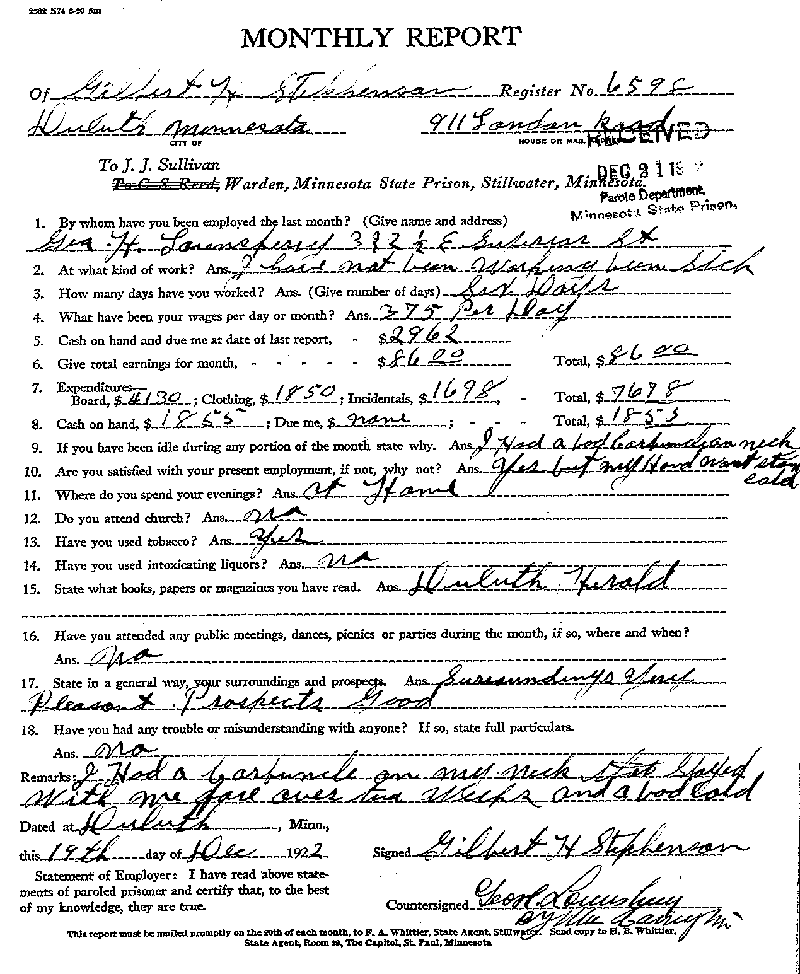 2382 S74 6-20 5m
MONTHLY REPORT
Of Gilbert H Stephenson Register No. 6598
Duluth Minnesota 911 London Road
CITY OF HOUSE OR MAIL RECEIVED
To J. J. Sullivan
To C. S. Reed, Warden, Minnesota State Prison, Stillwater, Minnesota.
DEC 21 19
Parole Department,
Minnesota State Prison.
1. By whom have you been employed the last month? (Give name and address)
Geo. H. Lounsberry 332 ½ E Superior St
2. At what kind of work? Ans. I have not been Working been Sick
3. How many days have you worked? Ans. (Give number of days) Six Days
4. What have been your wages per day or month? Ans. 375 Per Day
5. Cash on hand and due me at date of last report, - $2962
6. Give total earnings for month, - - - - - $8600 Total, $8600
7. Expenditures—
Board, $4130; Clothing, $1850; Incidentals, $1698, - Total, $7678
8. Cash on hand, $1855; Due me, $none; - - - Total, $1855
9. If you have been idle during any portion of the month state why. Ans. I Had a bad Carbuncle on neck
10. Are you satisfied with your present employment, if not, why not? Ans. Yes but my Hand wont stan
cold
11. Where do you spend your evenings? Ans. at Home
12. Do you attend church? Ans. no
13. Have you used tobacco? Ans. Yes
14. Have you used intoxicating liquors? Ans. no
15. State what books, papers or magazines you have read. Ans. Duluth Herald
16. Have you attended any public meetings, dances, picnics or parties during the month, if so, where and when?
Ans. No
17. State in a general way, your surroundings and prospects. Ans. Surroundings Very
Pleasant. Prospects Good
18. Have you had any trouble or misunderstanding with anyone? If so, state full particulars.
Ans. no
Remarks: I Had a Carbuncle on my neck that Stayed
With me fore over two Weeks and a bad cold
Dated at Duluth, Minn.,
this 19th day of Dec 1922 Signed Gilbert H Stephenson
Statement of Employer: I have read above state-
ments of paroled prisoner and certify that, to the best
of my knowledge, they are true.
Countersigned
This report must be mailed promptly on the 20th of each month, to F. A. Whittier, State Agent, Stillwater. Send copy to H. B. Whittier,
State Agent, Room 28, The Capitol, St. Paul, Minnesota